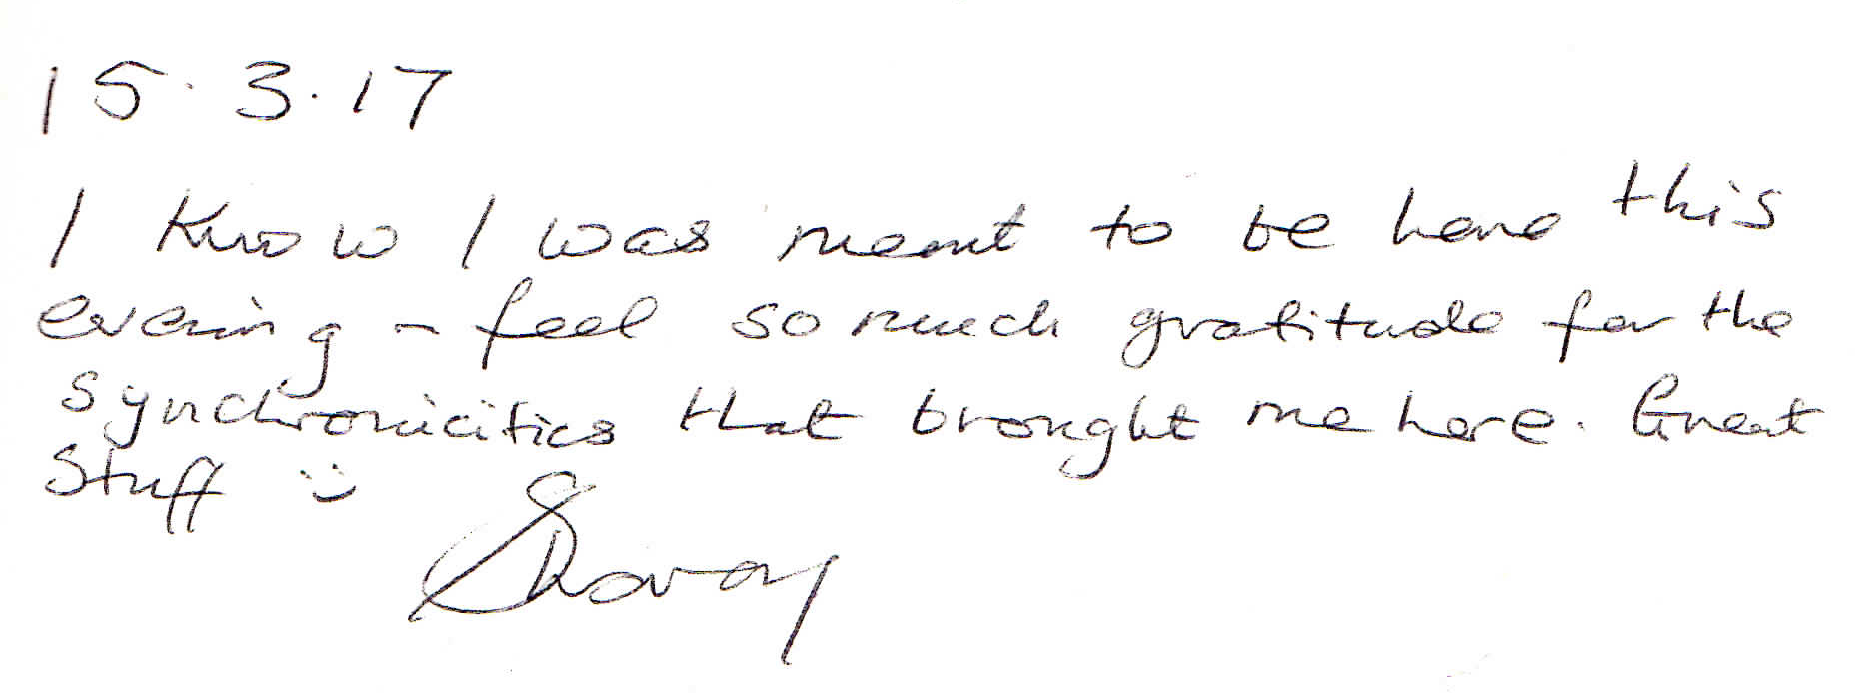 15.3.17
I know I was meant to be here this
evening - feel so much gratitude for the
synchronicities that brought me here. Great
Stuff :)